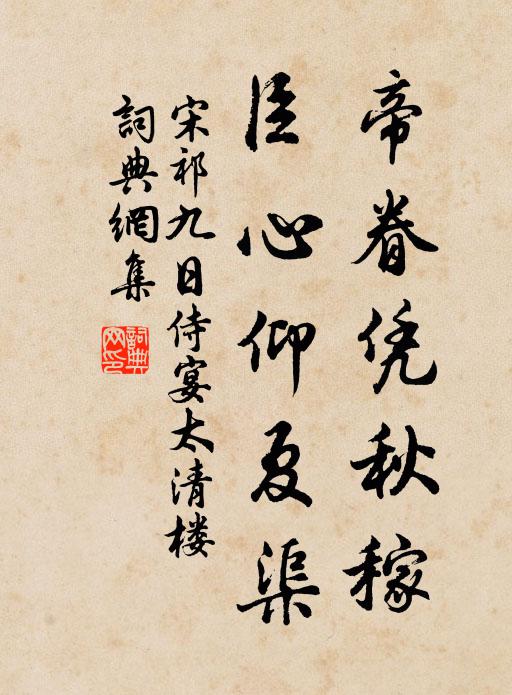 帝眷凭秋稼
臣心仰夏渠
宋祁九日侍宴太清楼
詞典網集
詞典网印